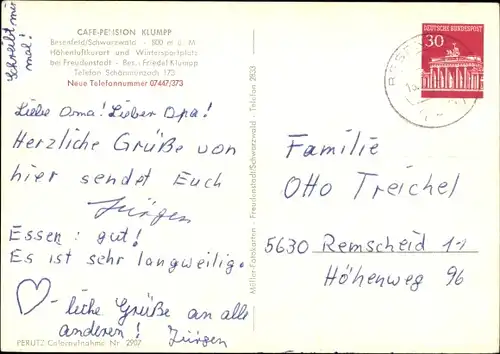 Schreibt mir
mal!
CAFE-PENSION KLUMPP
Besenfeld/Schwarzwald - 800 m ü. M
Höhenluftkurort und Wintersportplatz
bei Freudenstadt - Bes.: Friedel Klumpp
Telefon Schönmünzach 173
Neue Telefonnummer 07447/373
Liebe Oma! Lieber Opa!
Herzliche Grüße von
hier sendet Euch
Jürgen
Essen: gut!
Es ist sehr langweilig.
♡-liche Grüße an alle
anderen! Jürgen
PERUTZ Coloraufnahme Nr. 2907
Freudenstadt/Schwarzwald - Telefon 2833
DEUTSCHE BUNDESPOST
30
Familie
Otto Treichel
5630 Remscheid 11
Höhenweg 96